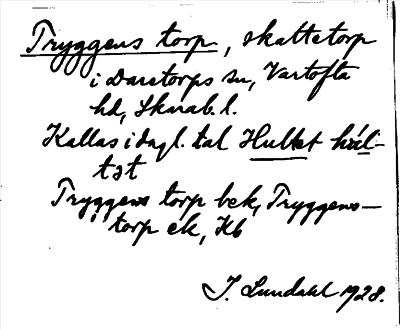 Tryggens torp, skattetorp
i Daretorps sn, Vartofta
hd, Skarab. l.
Kallas i dagl. tal Hultet húl-
tət
Tryggens torp bek, Tryggens-
torp ek, Kb
I. Lundahl 1928.